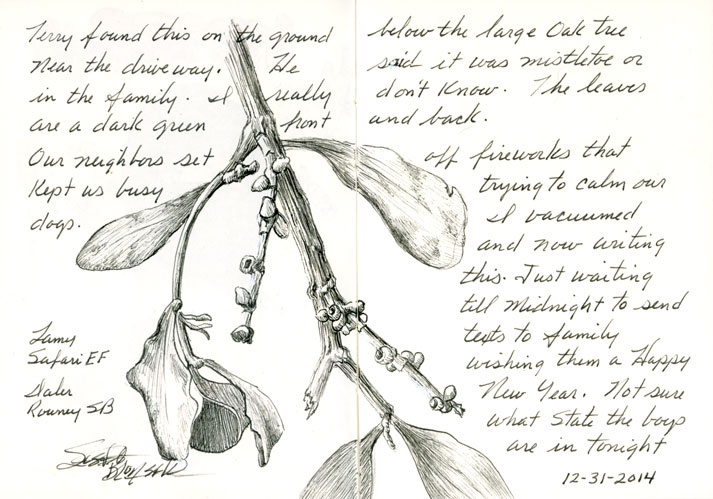 Terry found this on the ground below the large Oak tree
Near the driveway. He said it was mistletoe or
in the family. I really don't know. The leaves
are a dark green front and back.
Our neighbors set off fireworks that
kept us busy trying to calm our
dogs. I vacuumed
and now writing
this. Just waiting
till Midnight to send
texts to family
wishing them a Happy
New Year. Not sure
what State the boys
are in tonight
12-31-2014
Lamy
Safari EF
Daler
Rowney SB